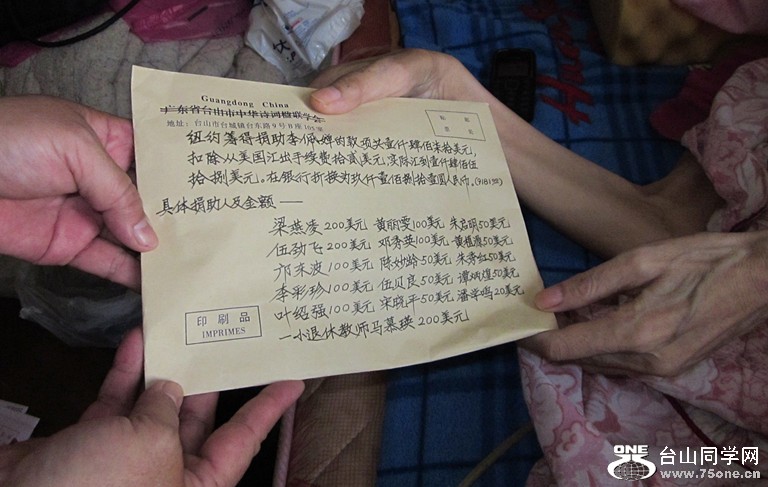 Guangdong China
广东省台山市中华诗词楹联学会
地址：台山市台城镇台东路9号B座105室
纽约筹得捐助李佩婵的款项共壹仟肆佰柒拾美元，
扣除从美国汇出手续费拾贰美元，实际汇到壹仟肆佰伍
拾捌美元。在银行折换为玖仟壹佰捌拾壹圆人民币。(9181元)
具体捐助人及金额——
梁燕凌200美元 黄丽雯100美元 朱昌明50美元
伍劲飞200美元 邓秀英100美元 黄植 50美元
邝东波100美元 陈妙龄50美元 朱秀红50美元
李彩珍100美元 伍贝良50美元 谭炳煌50美元
叶绍强100美元 宋晓平50美元 潘学鸣20美元
一小退休教师马慕瑛200美元
印刷品
IMPRIMES
ONE
台山同学网
www.75one.com